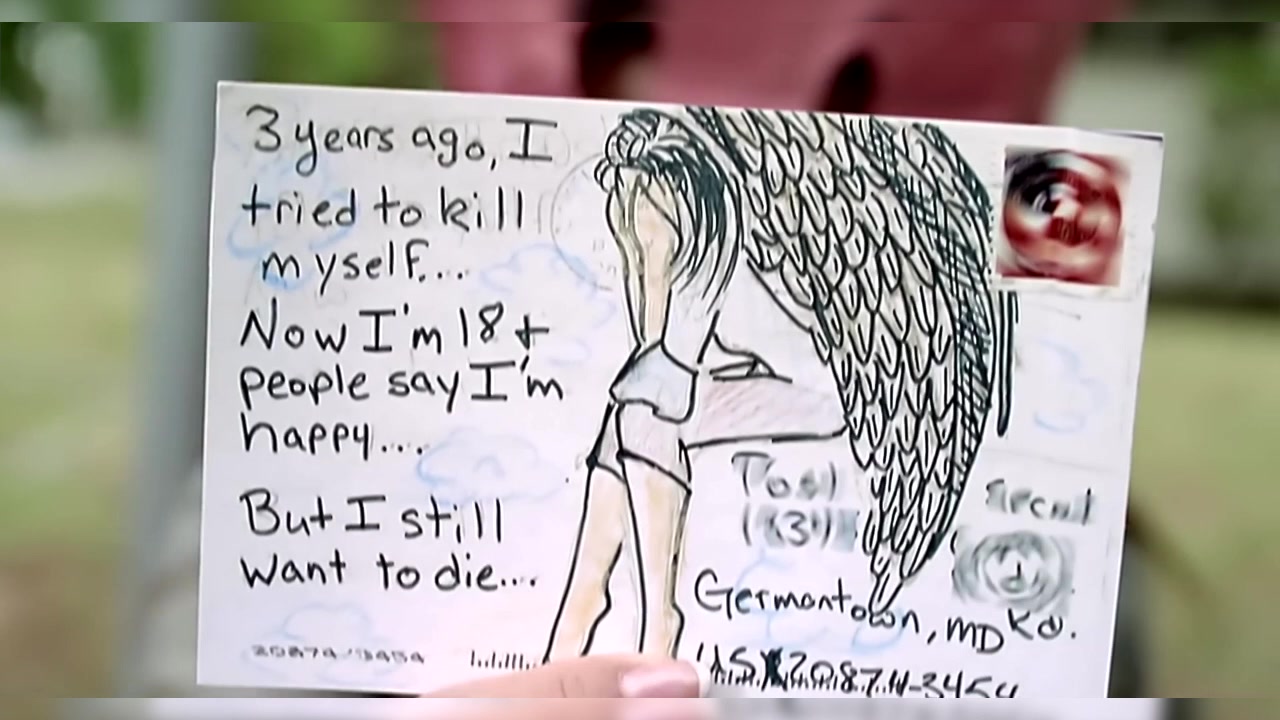 3 years ago, I
tried to kill
myself....
Now I'm 18 +
people say I'm
happy....
But I still
want to die...
Germantown, MD
Rd.
20874-3454